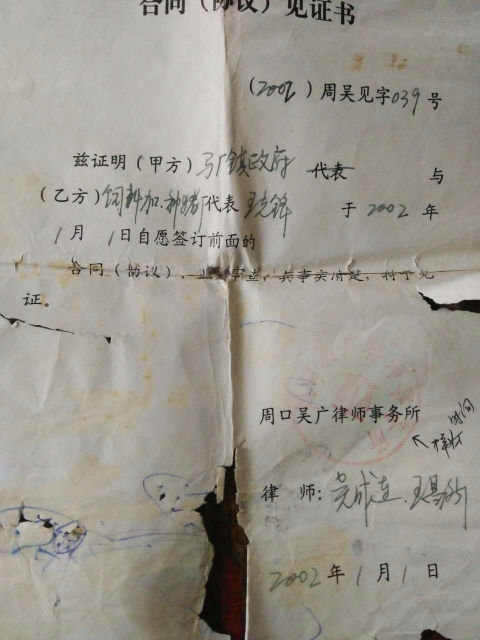 合同（协议）见证书
（2002）周吴见字039号
兹证明（甲方）马厂镇政府 代表 与
（乙方）饲料加.种猪厂代表 王克锋 于2002年
1月 1日自愿签订前面的
合同（协议），审查，其事实清楚，特予见
证。
周口吴广律师事务所
时间
律 师：
2002年1月1日